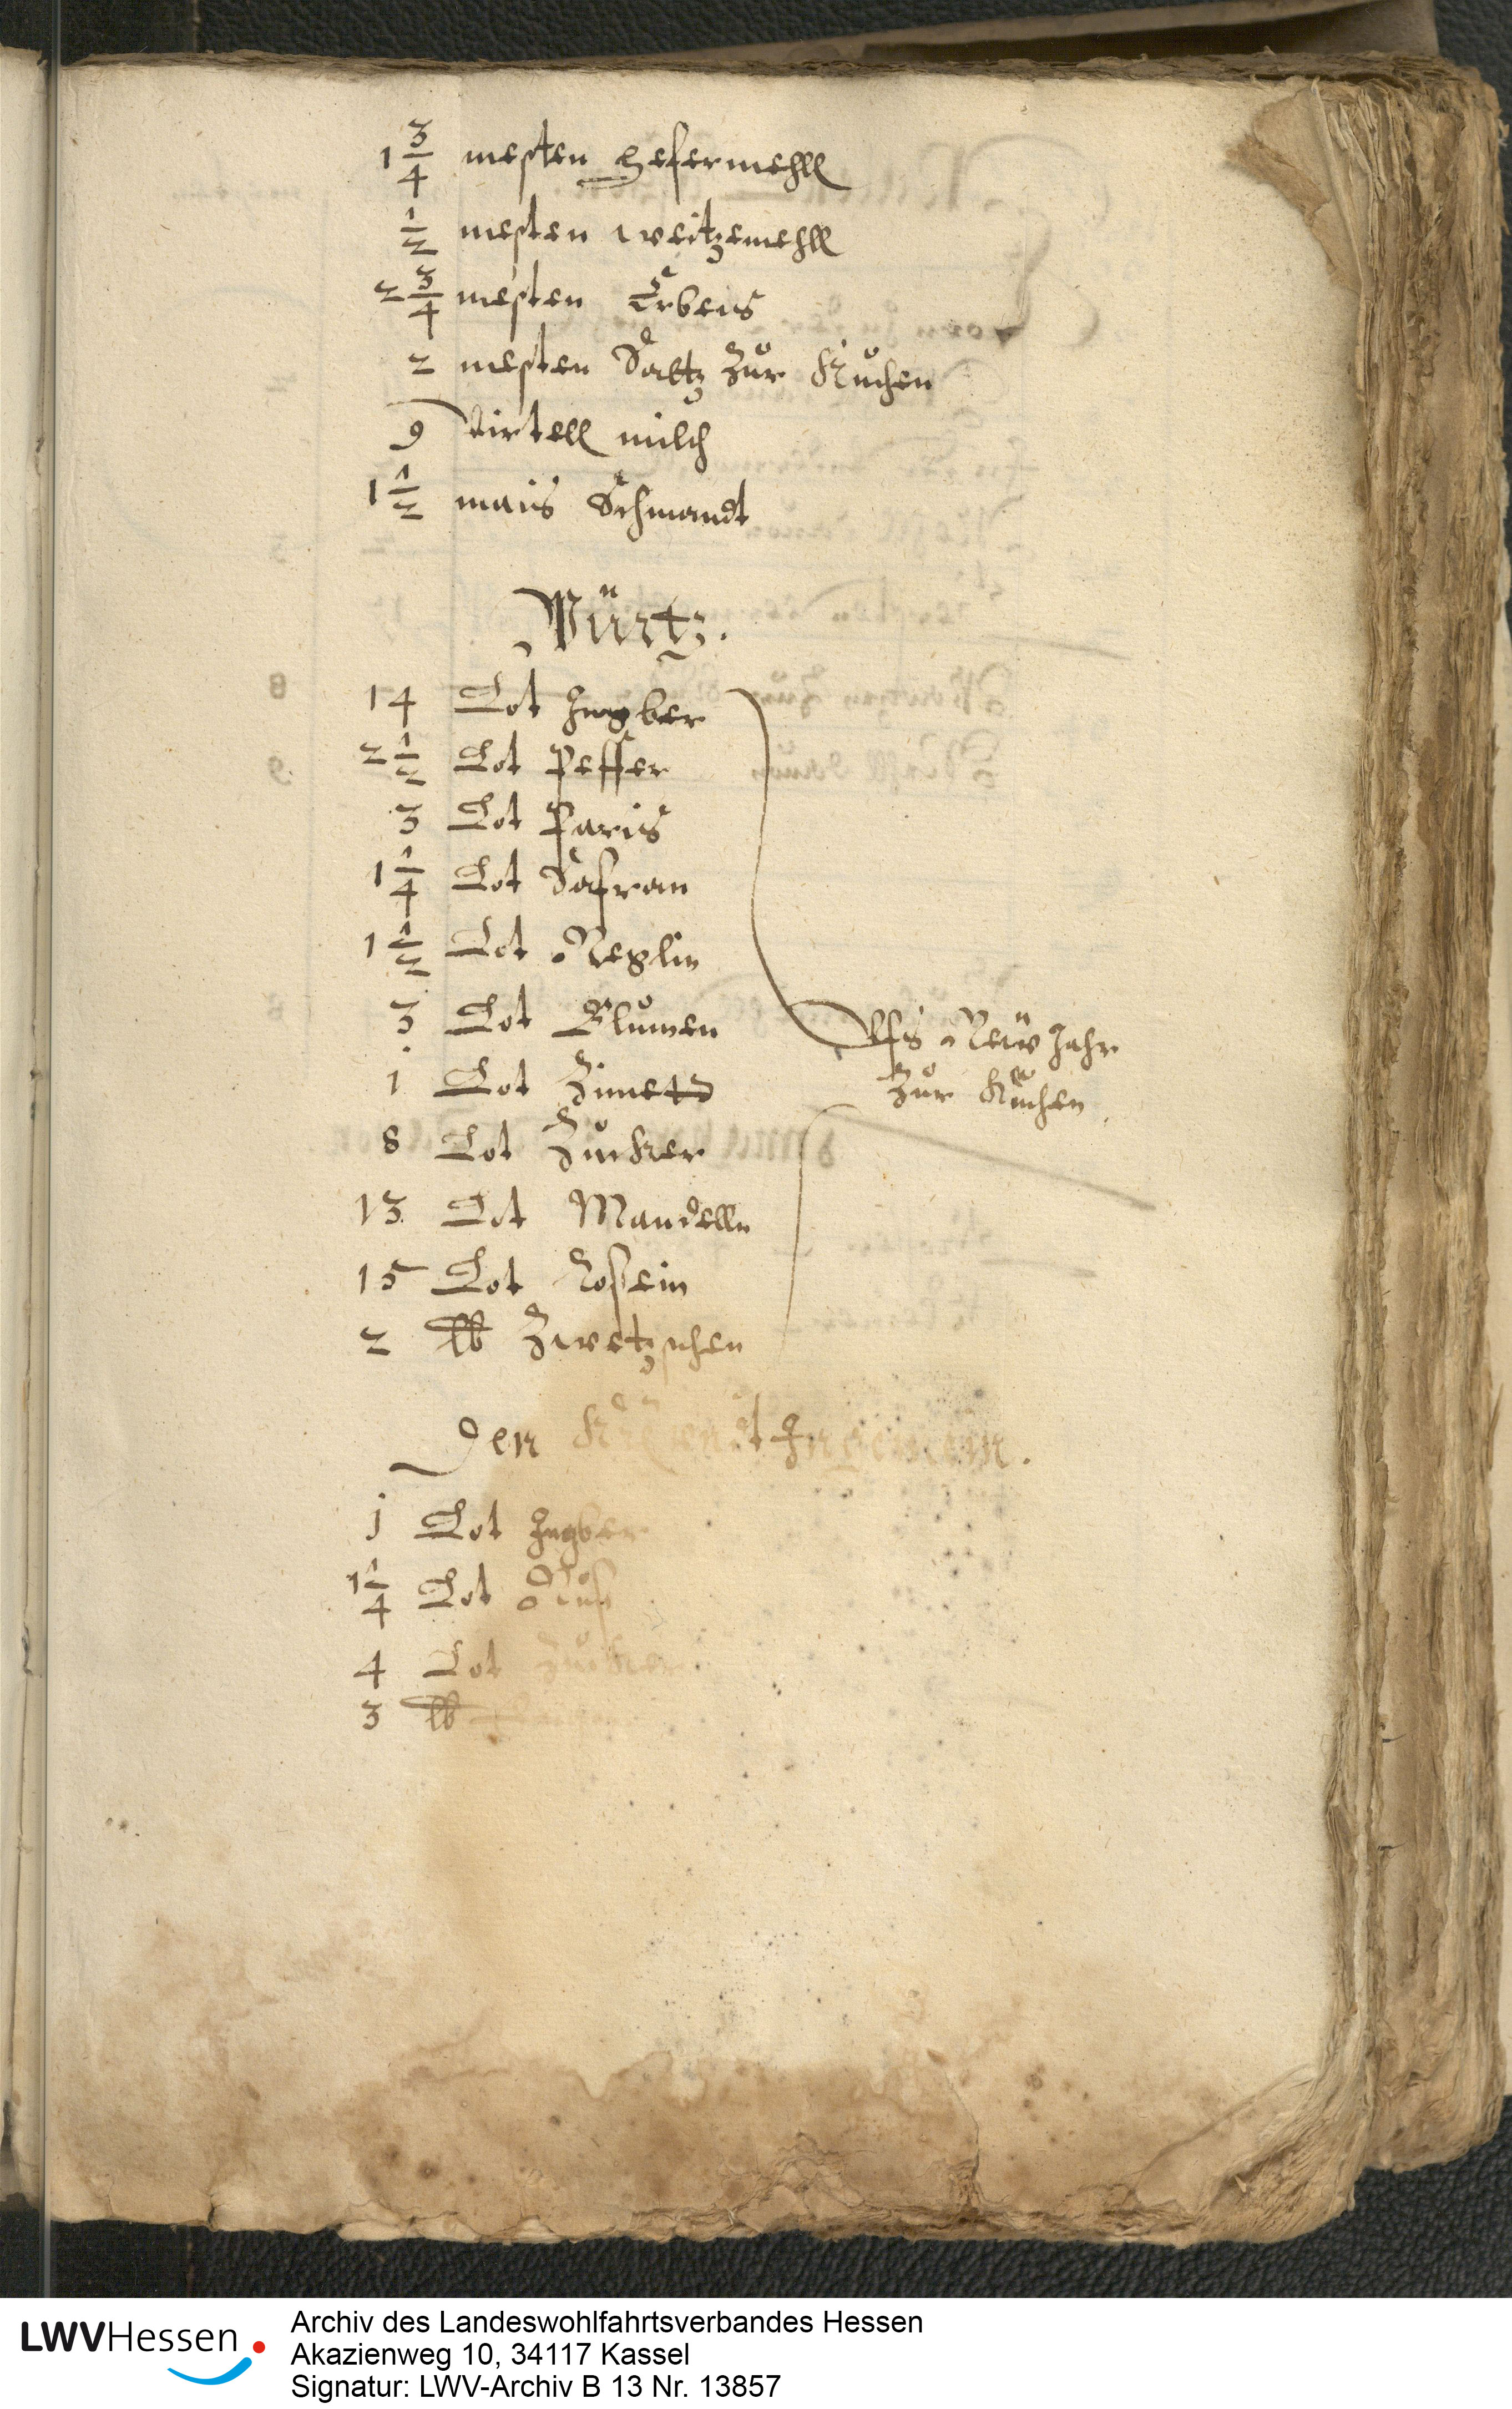 1 3/4 mesten Hefermehll
1/2 mesten weitzemehll
2 3/4 mesten Erbeis
2 mesten Saltz Zur Kuchen
9 virtell milch
1 1/2 mais Schmandt
Würtz.
14 Lot Ingber
2 1/2 Lot Peffer
3 Lot Paris
1 1/4 Lot Safran
1 1/2 Lot Neglin
3 Lot Blumen
1 Lot Zimett
8 Lot Zucker
13 Lot Mandelln
15 Lot Rosein
2 lb Zwetzschen
Vfs New Jahr
Zur Kuchen
Den
1 Lot Ingber
1 1/4 Lot
4 Lot Zucker
3 lb
LWVHessen
Archiv des Landeswohlfahrtsverbandes Hessen
Akazienweg 10, 34117 Kassel
Signatur: LWV-Archiv B 13 Nr. 13857